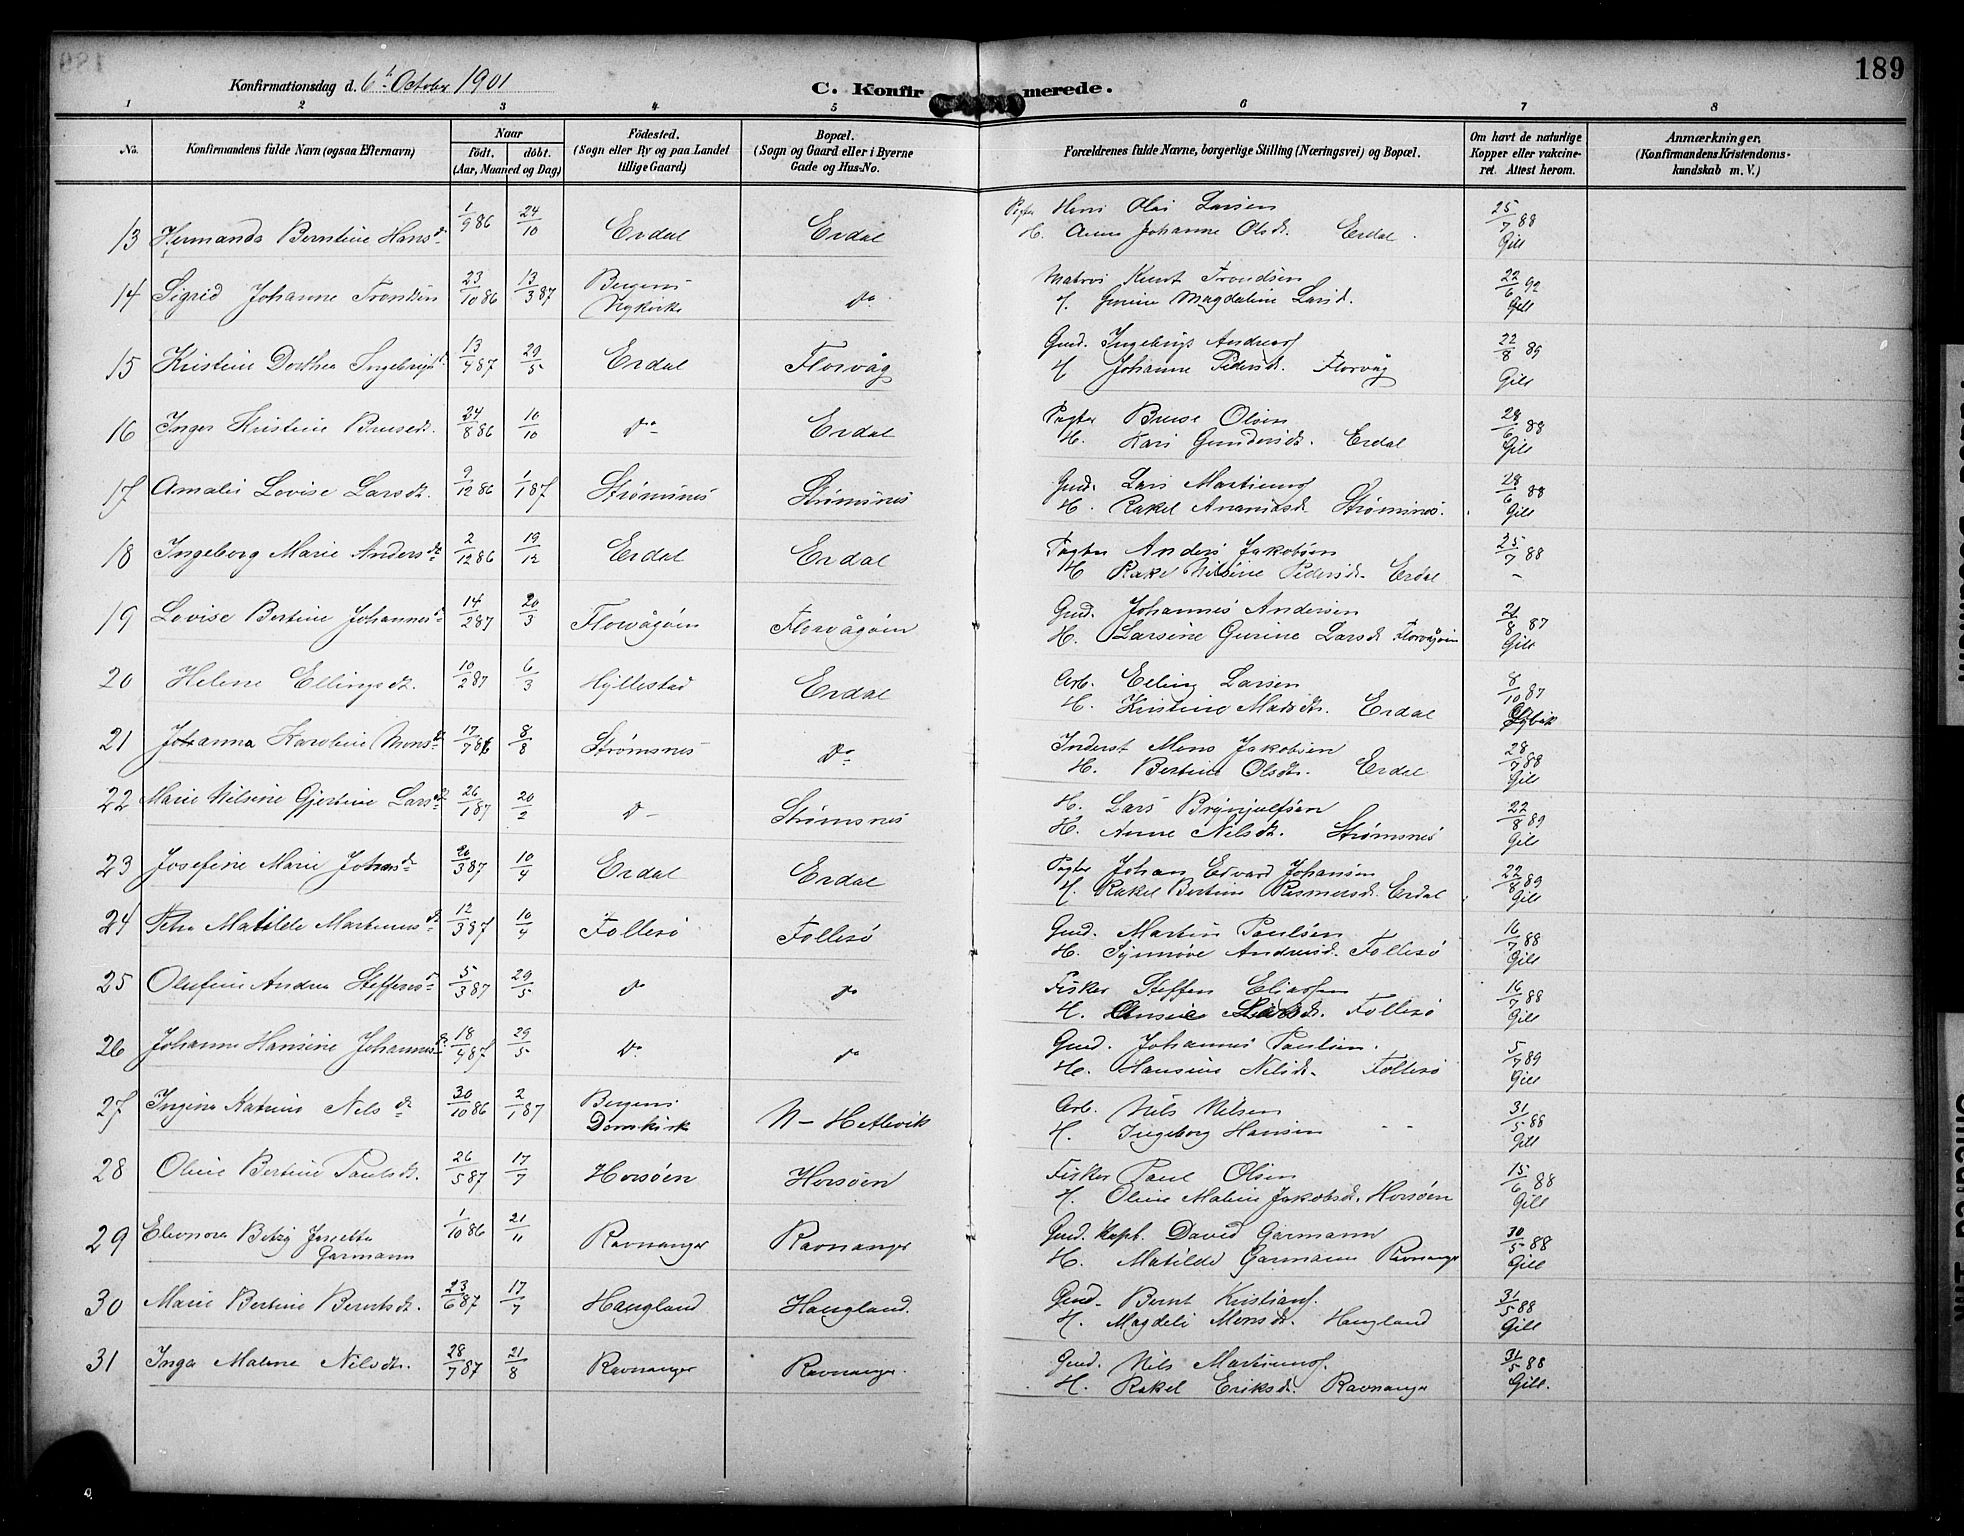 189
Konfirmationsdag d. 6t October 1901
C. Konfirmerede.
1 2 3 4 5 6 7 8
No. Konfirmandens fulde Navn (ogsaa Efternavn) Naar födt. döbt. (Aar, Maaned og Dag) Födested. (Sogn eller By og paa Landet tillige Gaard) Bopæl. (Sogn og Gaard eller i Byerne Gade og Hus-No. Forældrenes fulde Navne, borgerlige Stilling (Næringsvei) og Bopæl. Om havt de naturlige Kopper eller vakcineret. Attest herom. Anmærkninger. (Konfirmandens Kristendomskundskab m. V.)
13 Hermanda Berntine Hansd. 1/9 86 24/10 Erdal Erdal Pagter Hans Olai Larsen 25/7 88
H. Anna Johanne Olsdr. Erdal. Gill
14 Sigrid Johanne Trondsen 23/10 86 13/3 87 Bergens Nykirke do Matros Knut Trondsen 22/6 92
H. Gurine Magdaline Larsd. Gill
15 Kristine Dorthea Ingebrigtsd. 13/4 87 29/5 Erdal Florvåg Gmd. Ingebrigt Andreas. 22/8 89
H. Johanne Pedersd. Florvåg Gill
16 Inger Kristine Brusedr. 24/8 86 10/10 do Erdal Pagter Bruse Olsen 28/6 88
H. Kari Gundersdr. Erdal Gill
17 Amalie Lovise Larsdr. 9/12 86 1/1 87 Strømsnes Strømsnes Gmd. Lars Martinus. 28/6 88
H. Rakel Ananiasd. Strømsnes. Gill
18 Ingeborg Marie Andersdr 2/12 86 19/12 Erdal Erdal Pagter Anders Jakobsen 25/7 88
H. Rakel Nilsine Pedersdr. Erdal –
19 Lovise Bertine Johannesd. 14/2 87 20/3 Florvågøen Florvågøen Gmd. Johannes Andersen 21/8 87
H. Larsine Gurine Larsdr Florvågøen Gill
20 Helene Ellingsdr. 10/2 87 6/3 Hyllestad Erdal Arb. Elling Larsen 8/10 87
H. Kristine Madsdr. Erdal
21 Johanna Karoline Monsdr 17/7 86 8/8 Strømsnes do Inderst Mons Jakobsen 28/7 88
H. Bertine Olsdr. Erdal Gill
22 Marie Nilsine Gjertine Larsdr 26/1 87 20/2 do Strømsnes H. Lars Brynjulfsen 22/8 89
H. Anne Nilsdr. Strømsnes Gill
23 Josefine Marie Johansdr 20/3 87 10/4 Erdal Erdal Pagter Johan Edvard Johansen 22/8 89
H. Rakel Bertine Rasmusd. Erdal Gill
24 Petra Matilde Martinusdr 12/3 87 10/4 Follesø Follesø Gmd. Martin Paulsen 16/7 88
H. Synnøve Andreasd. Follesø Gill
25 Olufine Andrea Steffensd. 5/3 87 29/5 do do Fisker Steffen Eliassen 16/7 88
H. Follesø Gill
26 Johanne Hansine Johannesdr 18/4 87 29/5 do do Gmd. Johannes Paulsen. 5/7 89
H. Hansine Nilsdr. Follesø Gill
27 Ingina Katrine Nilsdr 30/10 86 2/1 87 Bergens Domkirke N – Hetlevik Arb. Nils Nilsen 31/5 88
H. Ingeborg Hansen " " Gill
28 Oline Bertine Paulsdr. 26/5 87 17/7 Horsøen Horsøen Fisker Paul Olsen 15/6 88
H. Oline Maline Jakobsdr. Horsøen Gill
29 Eleonora Betzy Garmann 1/10 86 21/11 Ravnanger Ravnanger Gmd. Kapt. David Garmann 30/5 88
H. Matilde Garmann Ravnanger Gill
30 Marie Bertine Berntsdr. 23/6 87 17/7 Haugland Haugland. Gmd. Bernt Kristians. 31/5 88
H. Magdeli Monsdr. Haugland Gill
31 Inga Malene Nilsdr. 28/7 87 21/8 Ravnanger Ravnanger. Gmd. Nils Martinus. 31/5 88
H. Rakel Eriksdr. Ravnanger Gill.